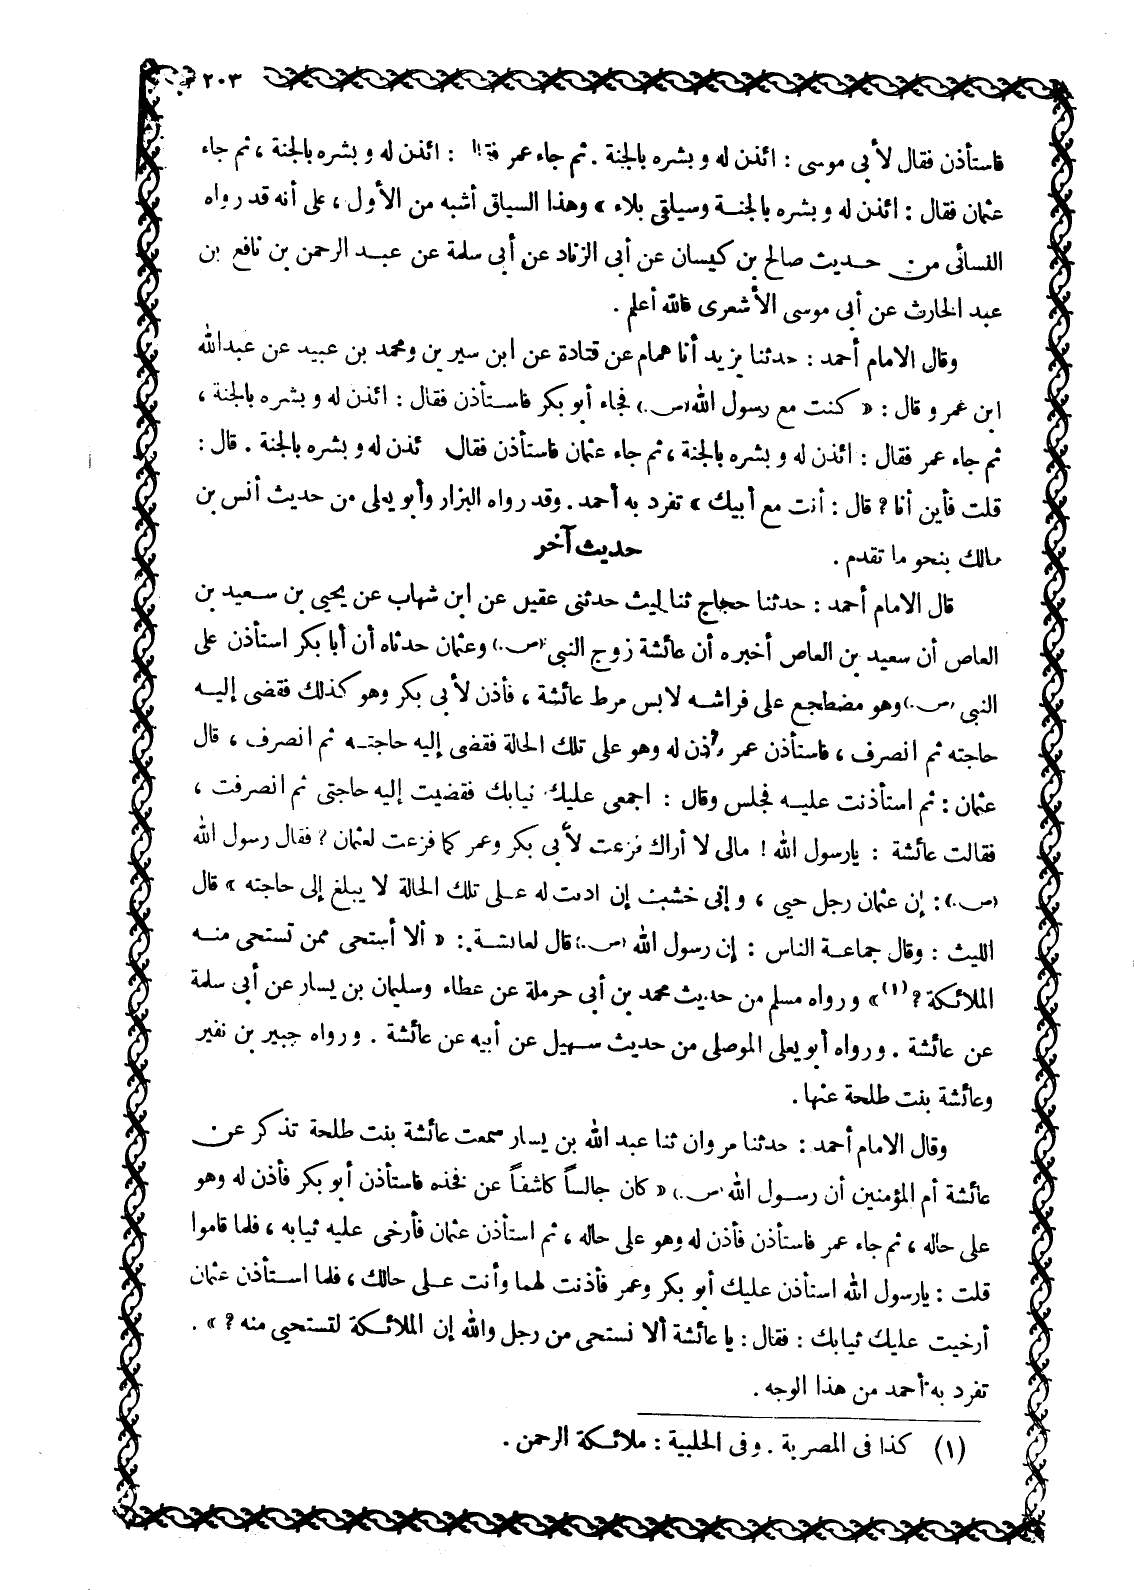 ٢٠٣
فاستأذن فقال لأبى موسى : ائذن له وبشره بالجنة . ثم جاء عمر : ائذن له وبشره بالجنة ، ثم جاء
عثمان فقال : ائذن له وبشره بالجنـة وسيلقى بلاء » وهذا السياق أشبه من الأول ، على أنه قد رواه
النسائى من حـديث صالح بن كيسان عن أبى الزناد عن أبى سلمة عن عبـد الرحمن بن نافع بن
عبد الحارث عن أبى موسى الأشعرى فالله أعلم .
وقال الامام أحمد : حدثنا يزيد أنا همام عن قتادة عن ابن سيرين ومحمد بن عبيد عن عبدالله
ابن عمرو قال : « كنت مع رسول الله (ص.) فجاء أبو بكر فاستأذن فقال : ائذن له وبشره بالجنة ،
ثم جاء عمر فقال : ائذن له وبشره بالجنة ، ثم جاء عثمان فاستأذن فقال ئذن له وبشره بالجنة . قال :
قلت فأين أنا ؟ قال : أنت مع أبيك » تفرد به أحمد . وقد رواه البزار وأبو يعلى من حديث أنس بن
مالك بنحو ما تقدم .
حديث آخر
قال الامام أحمد : حدثنا حجاج ثنا ليث حدثنى عقيل عن ابن شهاب عن يحيى بن سـعيد بن
العاص أن سعيد بن العاص أخبره أن عائشة زوج النبى (ص.) وعثمان حدثاه أن أبا بكر استأذن على
النبى (ص.) وهو مضطجع على فراشـه لابس مرط عائشة ، فأذن لأبى بكر وهو كذلك فقضى إليـه
حاجته ثم انصرف ، فاستأذن عمر فأذن له وهو على تلك الحالة فقضى إليه حاجتـه ثم انصرف ، قال
عثمان : ثم استأذنت عليـه فجلس وقال : اجمعى عليك ثيابك فقضيت إليه حاجتى ثم انصرفت ،
فقالت عائشة : يارسول الله ! مالى لا أراك فزعت لأبى بكر وعمر كما فزعت لعثمان ؟ فقال رسول الله
(ص.) : إن عثمان رجل حيى ، وإنى خشيت إن اذنت له عـلى تلك الحالة لا يبلغ إلى حاجته » قال
الليث : وقال جماعـة الناس : إن رسول الله (ص.) قال لعائشـة : « ألا أستحى ممن تستحى منـه
الملائكة ؟ (١) » ورواه مسلم من حديث محمد بن أبى حرملة عن عطاء وسليمان بن يسار عن أبى سلمة
عن عائشة . ورواه أبو يعلى الموصلى من حديث سـهيل عن أبيه عن عائشة . ورواه جبير بن نفير
وعائشة بنت طلحة عنها .
وقال الامام أحمد : حدثنا مروان ثنا عبد الله بن يسار سمعت عائشة بنت طلحة تذكر عن
عائشة أم المؤمنين أن رسـول الله (ص.) « كان جالساً كاشفاً عن فخذه فاستأذن أبو بكر فأذن له وهو
على حاله ، ثم جاء عمر فاستأذن فأذن له وهو على حاله ، ثم استأذن عثمان فأرخى عليه ثيابه ، فلما قاموا
قلت : يارسول الله استأذن عليك أبو بكر وعمر فأذنت لهما وأنت عـلى حالك ، فلما اسـتأذن عثمان
أرخيت عليك ثيابك : فقال : يا عائشة ألا نستحى من رجل والله إن الملائـكة لتستحيى منه ؟ » .
تفرد به أحمد من هذا الوجه .
(١) كذا فى المصرية . وفى الحلبية : ملائـكة الرحمن .